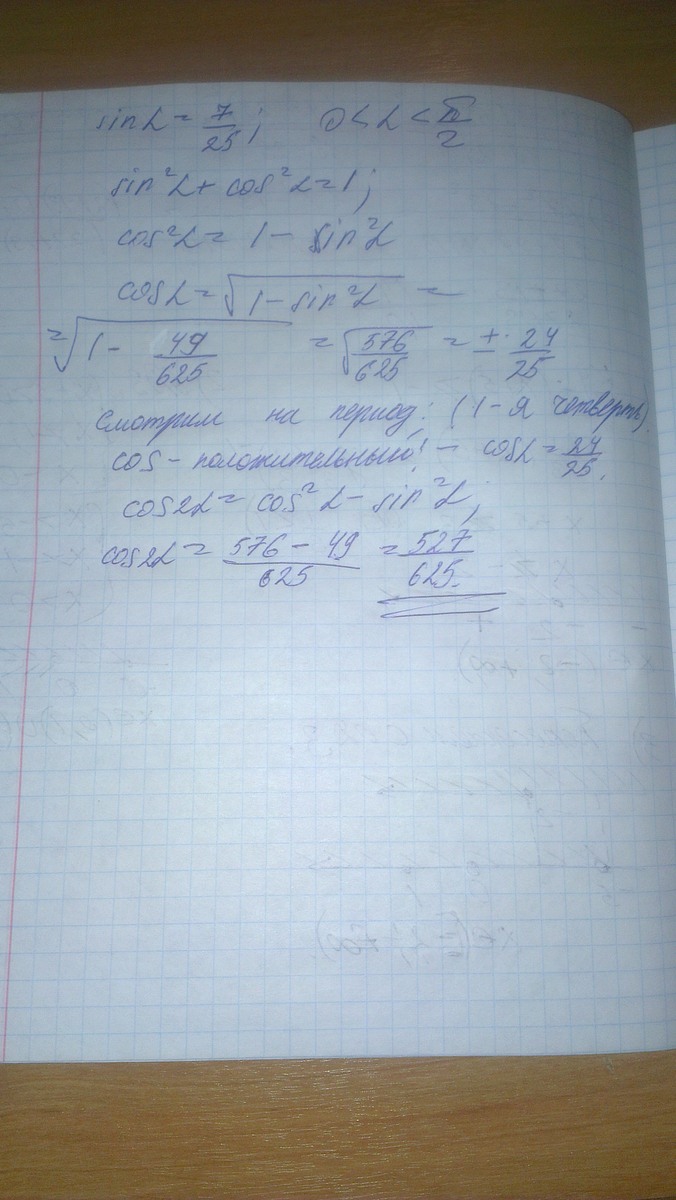 sin α = 7/25; 0 < α < π/2
sin²α + cos²α = 1;
cos²α = 1 - sin²α
cos α = √(1 - sin²α) =
= √(1 - 49/625) = √(576/625) = ± 24/25.
Смотрим на период: (1-я четверть).
cos - положительный! - cos α = 24/25.
cos2α = cos²α - sin²α;
cos2α = (576 - 49)/625 = 527/625.